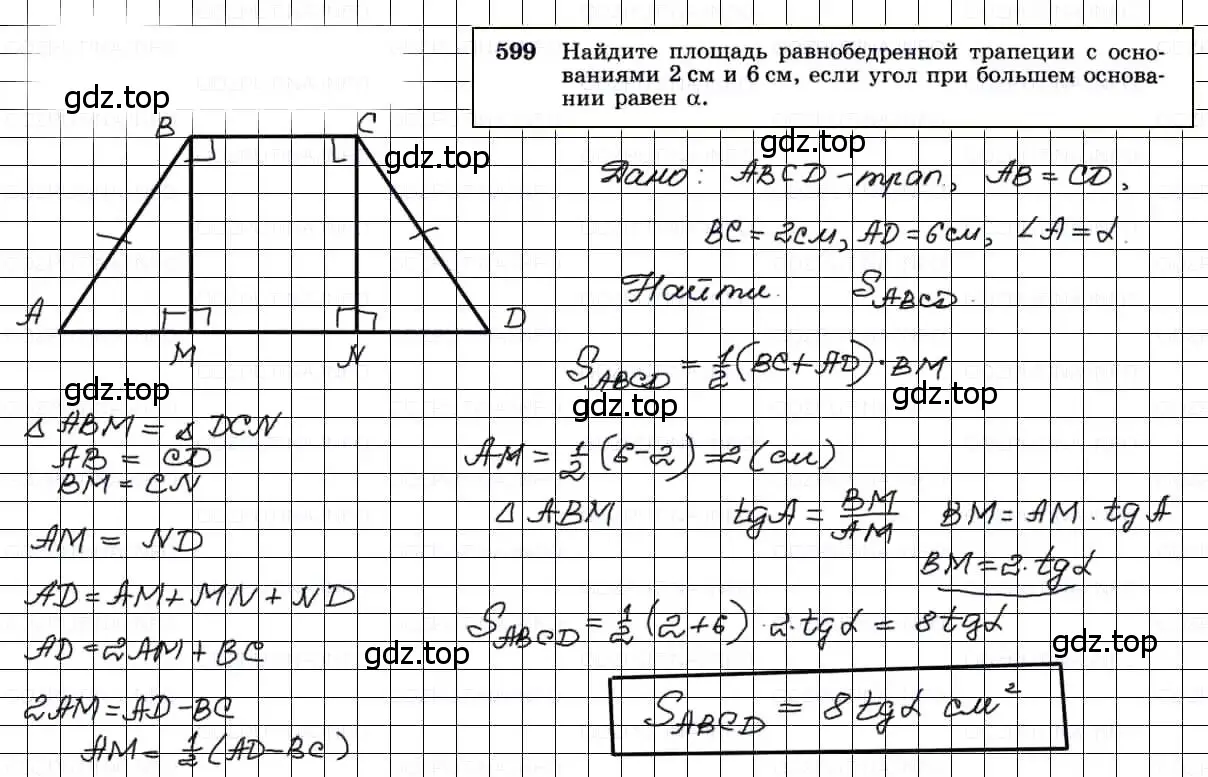 599 Найдите площадь равнобедренной трапеции с осно-
ваниями 2 см и 6 см, если угол при большем основа-
нии равен α.
gdz.top
B C
gdz.top
gdz.top
A D
M N
gdz.top
Дано: ABCD - трап., AB = CD,
BC = 2см, AD = 6см, ∠A = α.
Найти. S_ABCD.
S_ABCD = 1/2 (BC + AD) · BM
gdz.top
gdz.top
Δ ABM = Δ DCN
AB = CD
BM = CN
AM = ND
AD = AM + MN + ND
AD = 2AM + BC
gdz.top
2AM = AD - BC
AM = 1/2 (AD - BC)
AM = 1/2 (6-2) = 2 (см)
Δ ABM tg A = BM/AM BM = AM · tg A
BM = 2 · tg α
S_ABCD = 1/2 (2+6) · 2 · tg α = 8 tg α
gdz.top
S_ABCD = 8 tg α см²